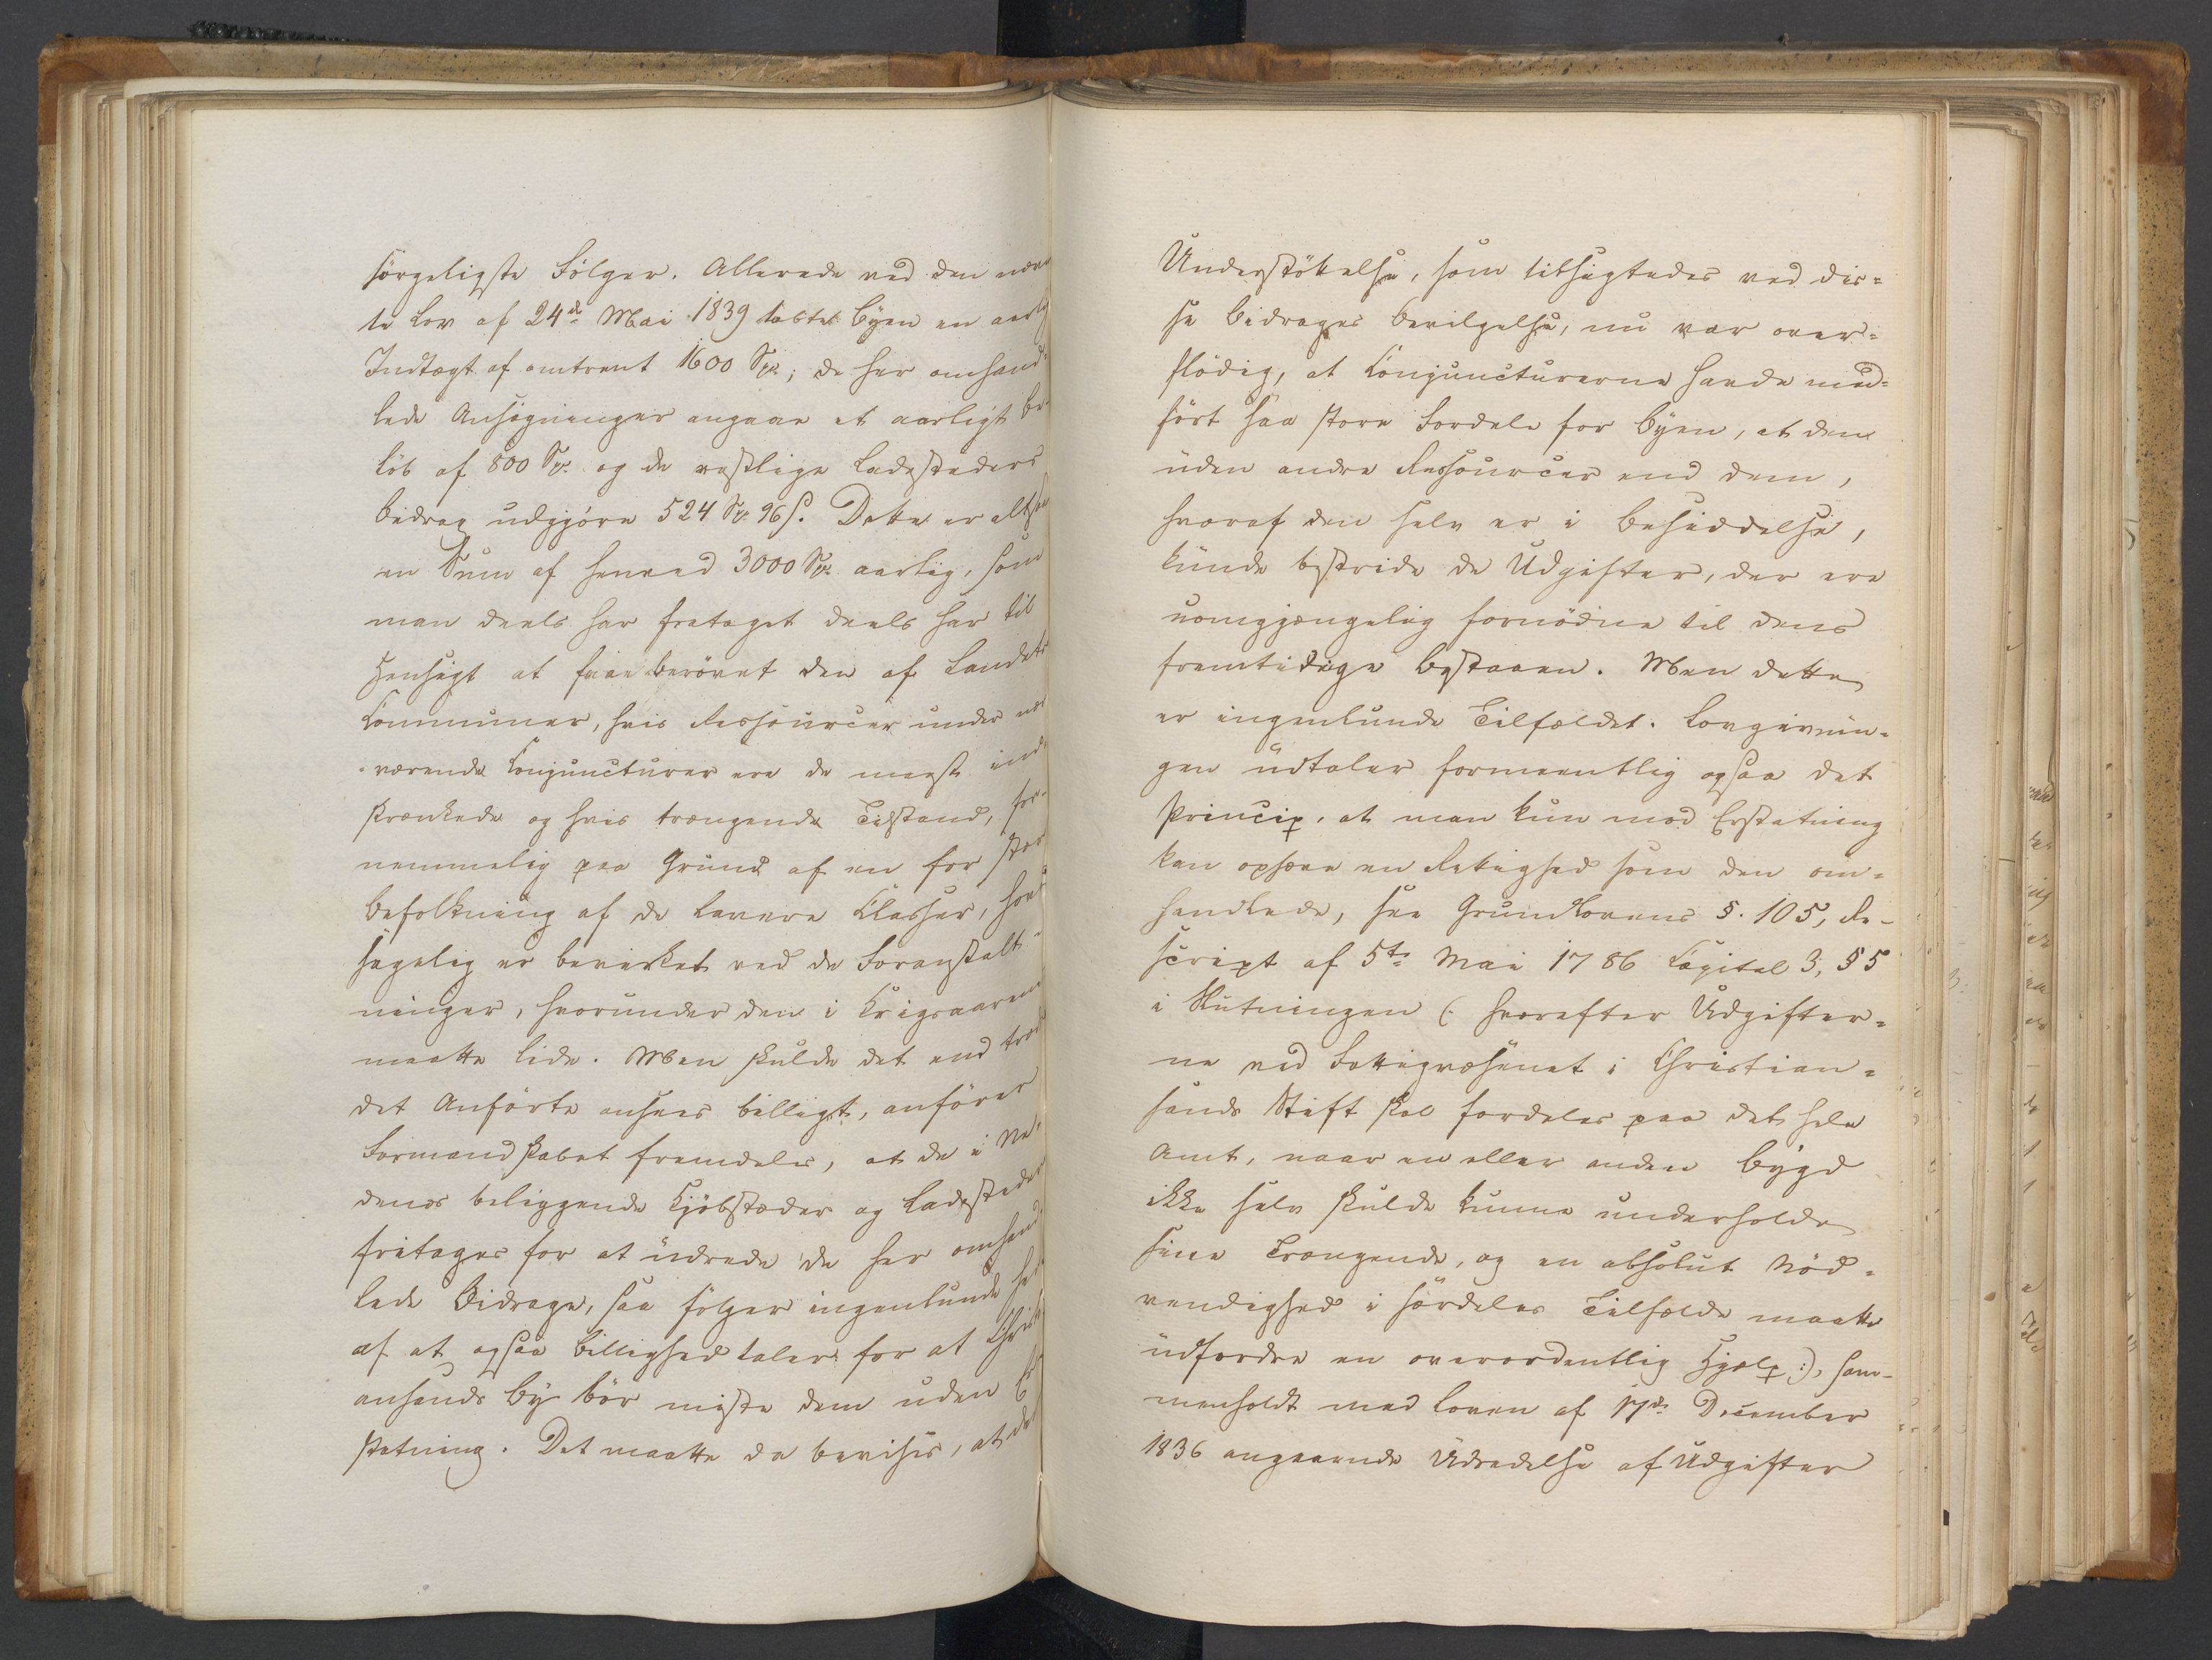 sörgeligste Fölger. Allerede ved den nævn
te Lov af 24de Mai 1839 tabte Byen en aarlig
Indtægt af omtrent 1600 Spd; de her omhand=
lede Ansøgninger angaae et aarligt Be=
löb af 800 Spd. og de vestlige Ladesteders
Bidrag udgjöre 524 Spd. 96 s. Dette er altsaa
en Sum af henved 3000 Spd. aarlig, som
man deels har fratoget deels har til
Hensigt at faae berövet den af Landets
Communer, hvis Ressourcer under nær
værende Conjuncturer ere de meest ind=
skrænkede og hvis trængende Tilstand, for=
nemmelig paa Grund af en for stor
Befolkning af de lavere Classer, hoved
sagelig er bevirket ved de Foranstalt=
ninger, hvorunder den i Krigsaarene
maatte lide. Men skulde det end trods
det Anförte ansees billigt, anförer
Formandskabet fremdeles, at de i Ne=
denæs beliggende Kjöbstæder og Ladesteder
fritages for at udrede de her omhand=
lede Bidrage, saa fölger ingenlunde her
af at ogsaa Billighed taler for at Christi
ansands By bör miste dem uden Er
statning. Det maatte da bevises, at den
Understöttelse, som tilsigtedes ved dis=
se Bidrages Bevilgelse, nu var over=
flödig, at Conjuncturerne havde med=
fört saa store Fordele for Byen, at den
uden andre Ressourcer end dem,
hvoraf den selv er i Besiddelse,
kunde bestride de Udgifter, der ere
uomgjængelig fornödne til dens
fremtidige Bestaaen. Men dette
er ingenlunde Tilfældet. Lovgivnin=
gen udtaler formeentlig ogsaa det
Princip, at man kun mod Erstatning
kan ophæve en Rettighed som den om=
handlede, see Grundlovens §. 105, Re=
script af 5te Mai 1786 Capitel 3, § 5
i Slutningen (: hvorefter Udgifter=
ne ved Fattigvæsenet i Christian=
sands Stift skal fordeles paa det hele
Amt, naar en eller anden Bygd
ikke selv skulde kunne underholde
sine Trængende, og en absolut Nöd=
vendighed i særdeles Tilfælde maatte
udfordre en overordentlig Hjælp :), sam=
menholdt med Loven af 17de December
1836 angaaende Udredelse af Udgifter